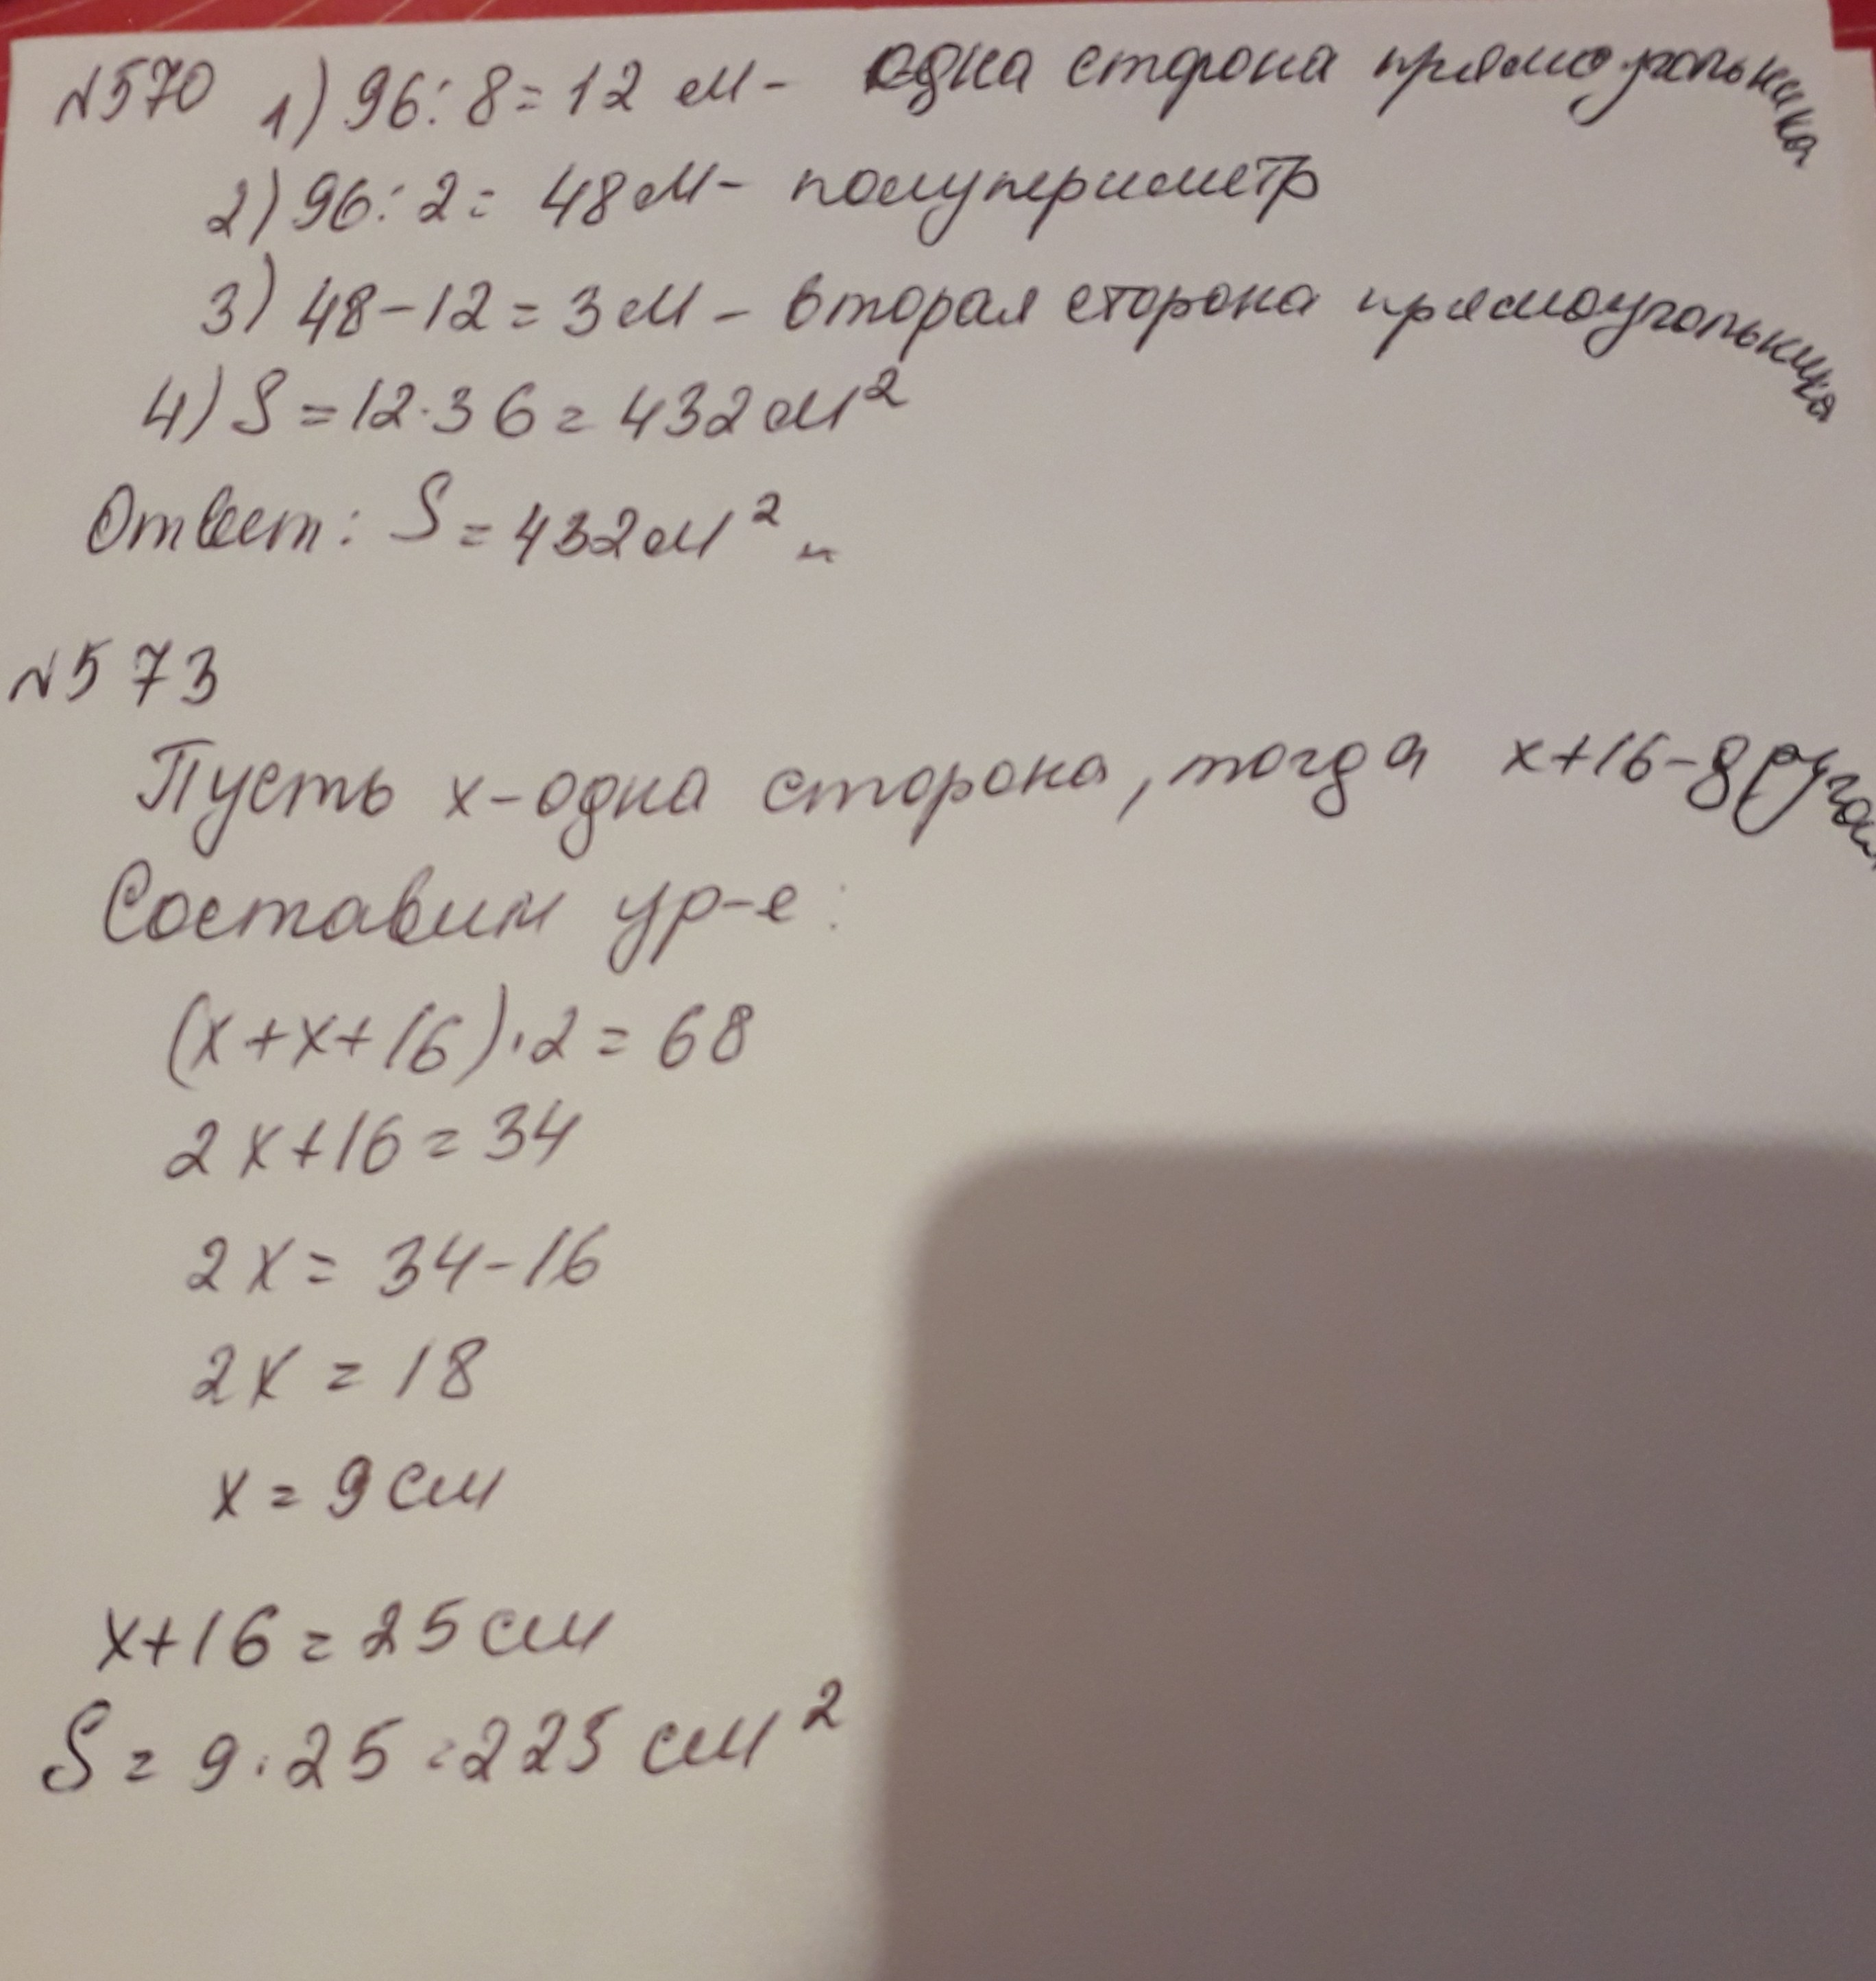 №570 1) 96:8=12 м - одна сторона прямоугольника
2) 96:2=48 м - полупериметр
3) 48-12=3 м - вторая сторона прямоугольника
4) S=12·36=432 м²
Ответ: S=432 м²
№573
Пусть х-одна сторона, тогда х+16-другая.
Составим ур-е:
(х+х+16)·2=68
2х+16=34
2х=34-16
2х=18
х=9 см
х+16=25 см
S=9·25=225 см²